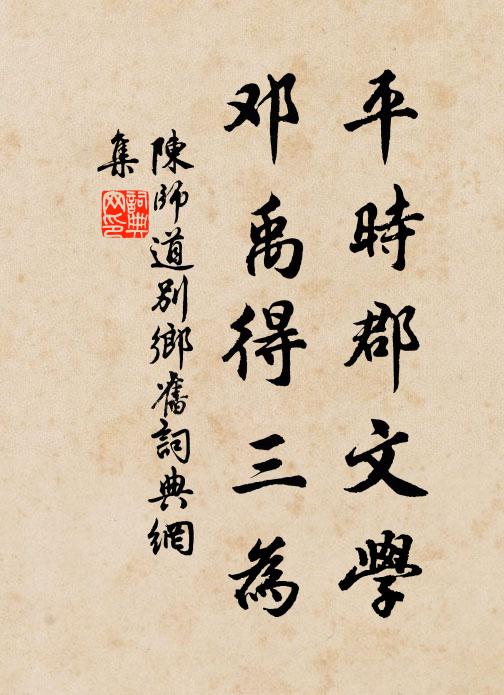 平時郡文學
邓禹得三為
陳師道別鄉舊詞典網
集
詞典
网印